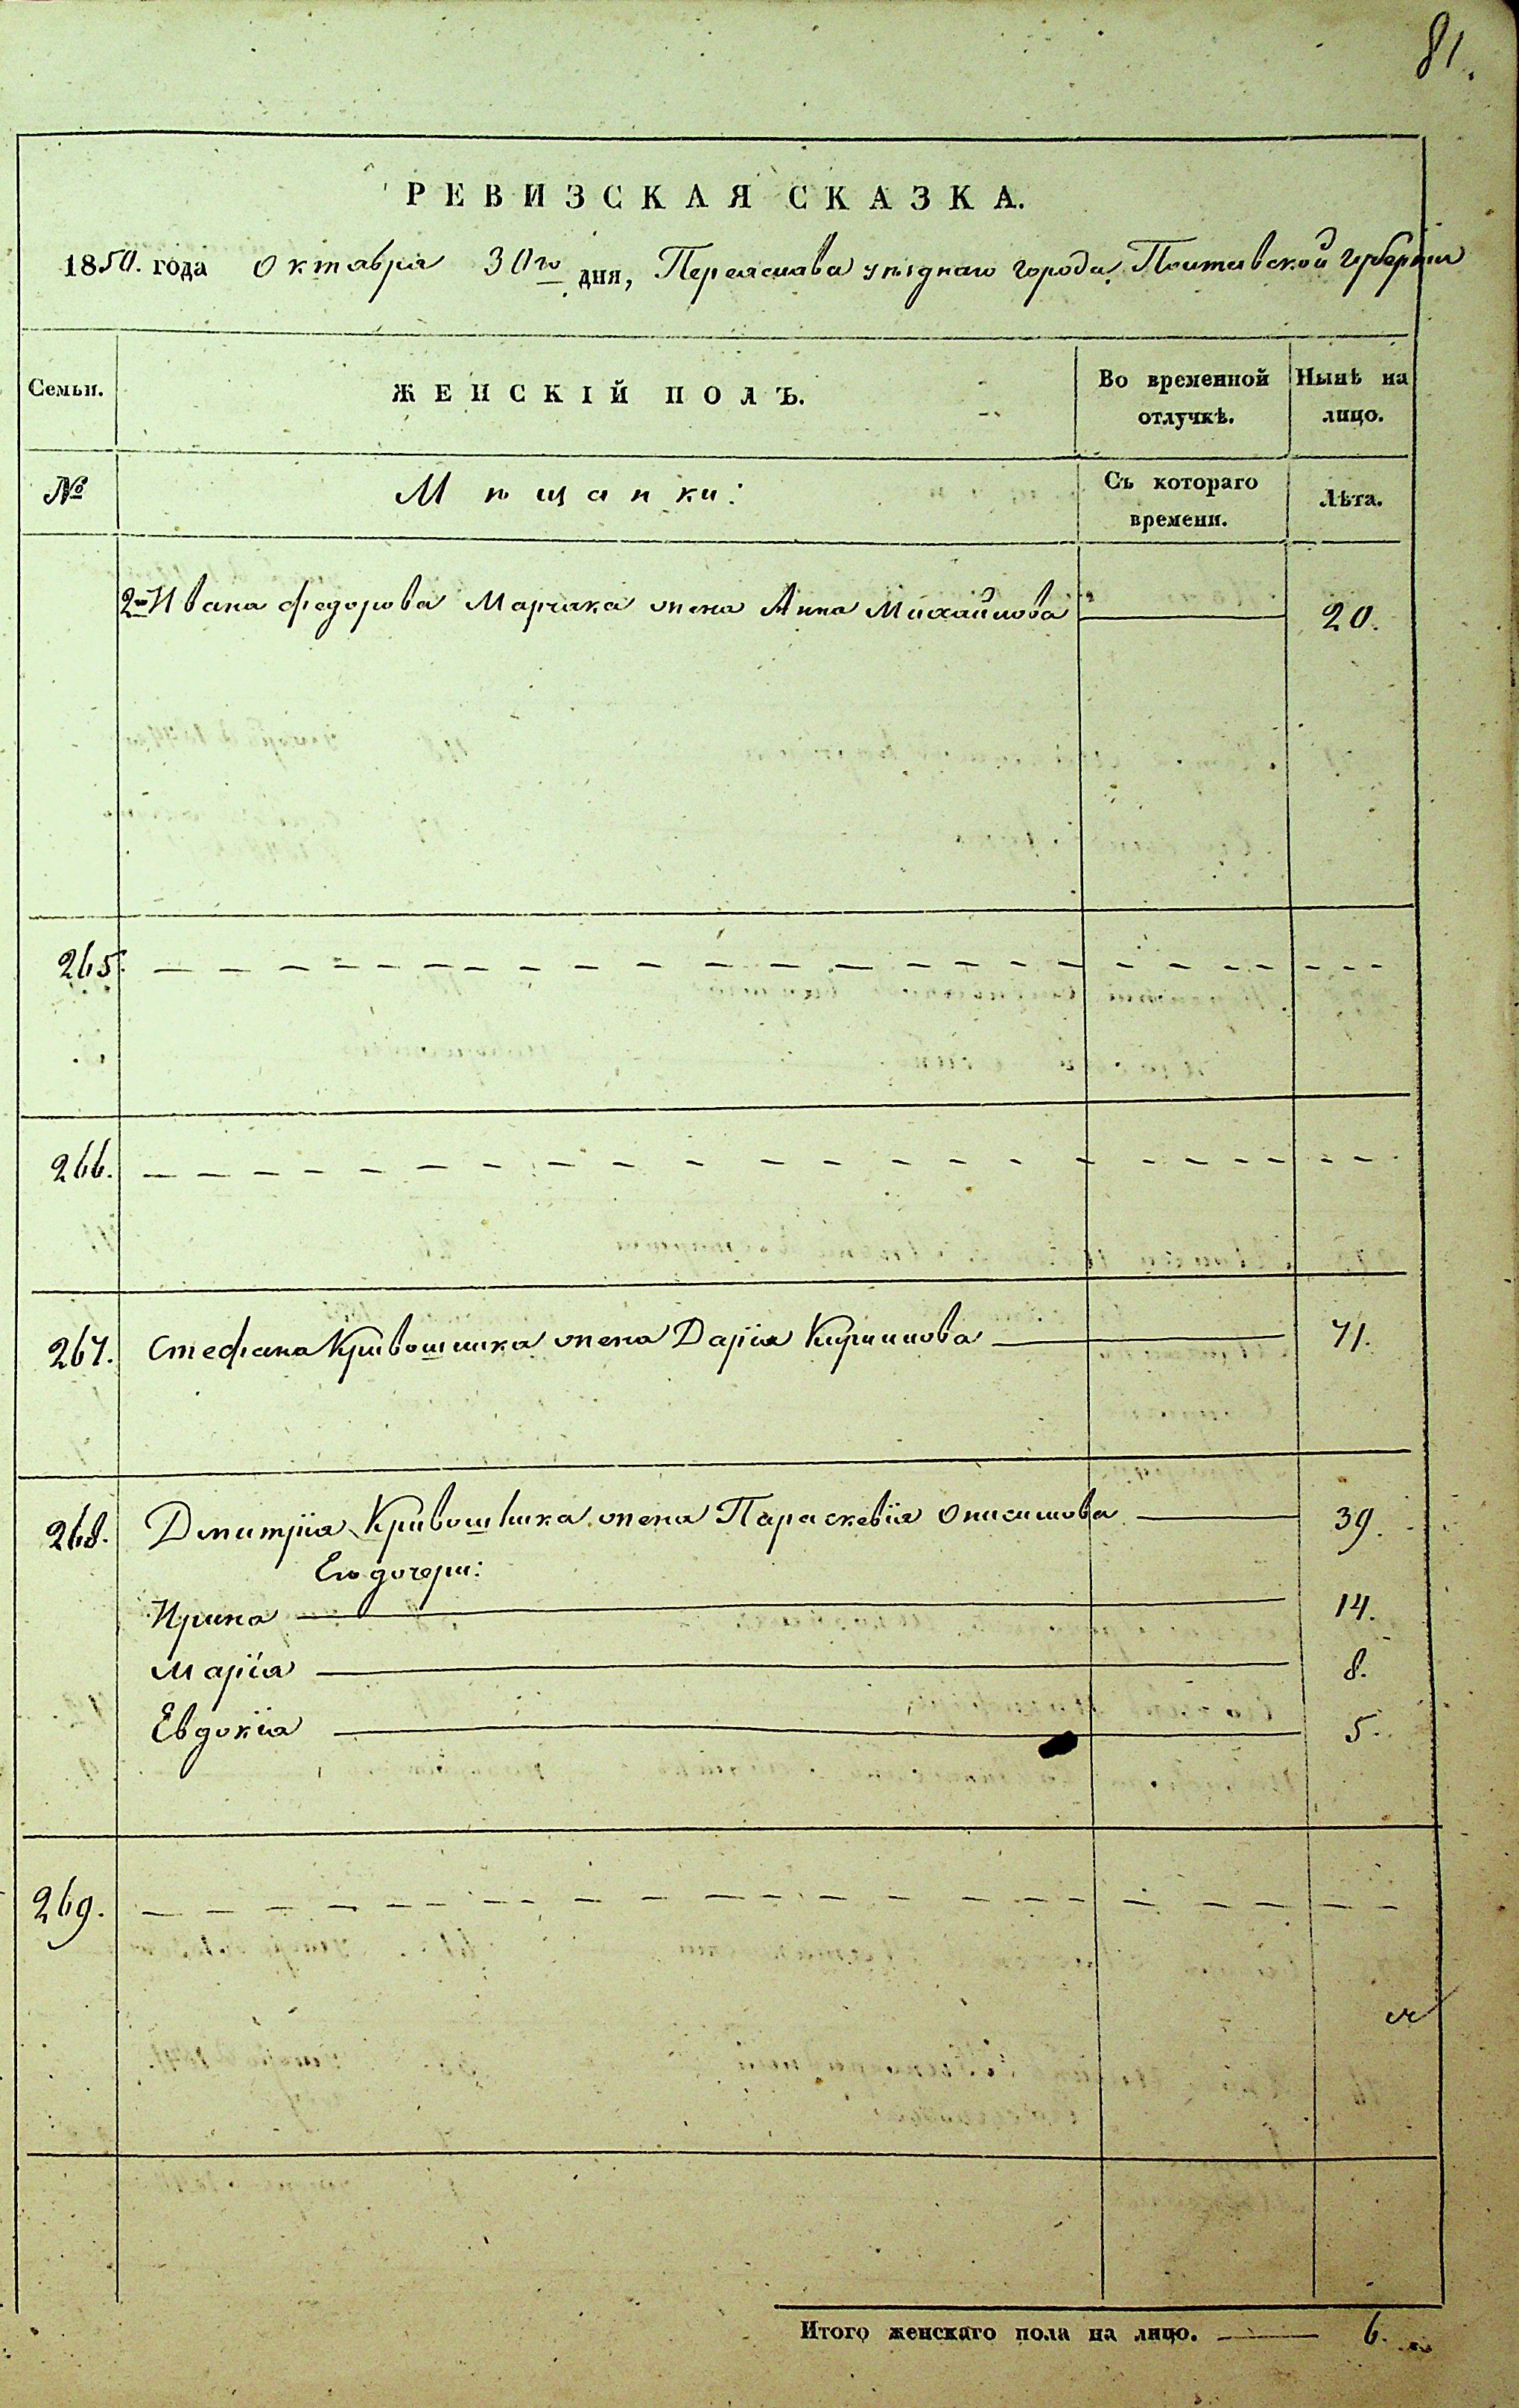 81.
РЕВИЗСКАЯ СКАЗКА.
1850. года Октября 30го дня, Переяслава уѣзднаго города, Полтавской губерніи
Семьи.
ЖЕНСКІЙ ПОЛЪ.
Во временной отлучкѣ.
Нынѣ на лицо.
№
Мѣщанки:
Съ котораго времени.
Лѣта.
2й Ивана Федорова Марчака жена Анна Михайлова 20.
265.
266.
267. Стефана Кривошлыка жена Дарія Кирилова 71.
268. Дмитрія Кривошлыка жена Параскевія Онисимова 39.
Его дочери:
Ирина 14.
Марія 8.
Евдокія 5.
269.
Итого женскаго пола на лицо. 6.